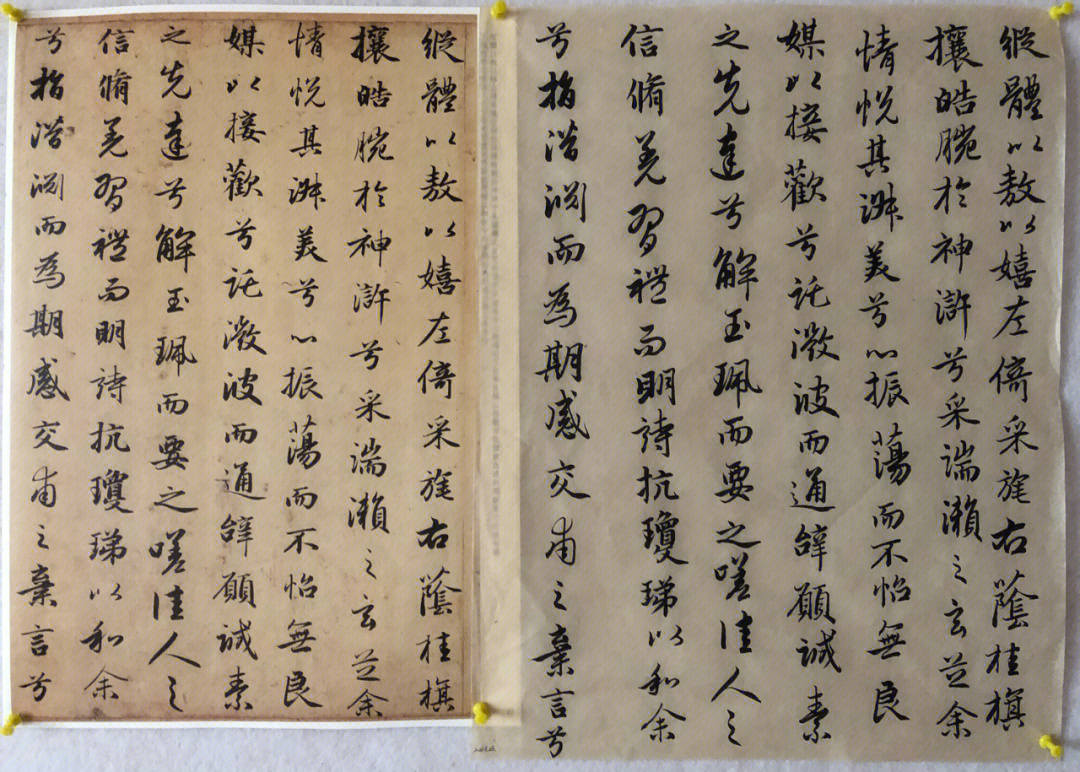 縱體以敖以嬉左倚采旄右蔭桂旗
攘皓腕於神滸兮采湍瀨之玄芝余
情悅其淑美兮心振蕩而不怡無良
媒以接歡兮託微波而通辭願誠素
之先達兮解玉珮而要之嗟佳人之
信脩羌習禮而明詩抗瓊珶以和余
兮指潛淵而為期感交甫之棄言兮
縱體以敖以嬉左倚采旄右蔭桂旗
攘皓腕於神滸兮采湍瀨之玄芝余
情悅其淑美兮心振蕩而不怡無良
媒以接歡兮託微波而通辭願誠素
之先達兮解玉珮而要之嗟佳人之
信脩羌習禮而明詩抗瓊珶以和余
兮指潛淵而為期感交甫之棄言兮